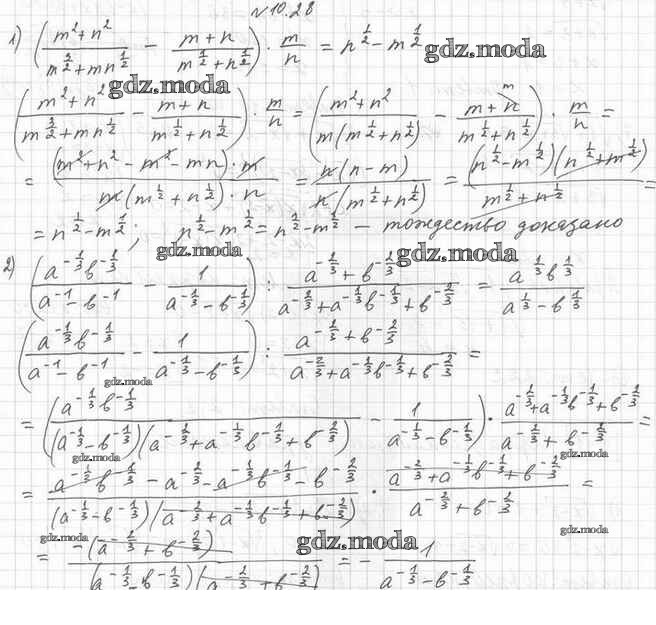 №10.28
1) ( (m²+n²)/(m^{3/2}+mn^{1/2}) - (m+n)/(m^{1/2}+n^{1/2}) ) · m/n = n^{1/2} - m^{1/2}
gdz.moda
gdz.moda
( (m²+n²)/(m^{3/2}+mn^{1/2}) - (m+n)/(m^{1/2}+n^{1/2}) ) · m/n = ( (m²+n²)/(m(m^{1/2}+n^{1/2})) - (m+n)/(m^{1/2}+n^{1/2}) ^m ) · m/n =
= ((m²+n²-m²-mn)·m)/(m(m^{1/2}+n^{1/2})·n) = (n(n-m))/(n(m^{1/2}+n^{1/2})) = ((n^{1/2}-m^{1/2})(n^{1/2}+m^{1/2}))/(m^{1/2}+n^{1/2}) =
= n^{1/2} - m^{1/2}; n^{1/2} - m^{1/2} = n^{1/2} - m^{1/2} - тождество доказано
gdz.moda
gdz.moda
2) ( (a^{-1/3}b^{-1/3})/(a^{-1}-b^{-1}) - 1/(a^{-1/3}-b^{-1/3}) ) : (a^{-1/3}+b^{-2/3})/(a^{-2/3}+a^{-1/3}b^{-1/3}+b^{-2/3}) = (a^{1/3}b^{1/3})/(a^{1/3}-b^{1/3})
( (a^{-1/3}b^{-1/3})/(a^{-1}-b^{-1}) - 1/(a^{-1/3}-b^{-1/3}) ) : (a^{-2/3}+b^{-2/3})/(a^{-2/3}+a^{-1/3}b^{-1/3}+b^{-2/3}) =
gdz.moda
= ( (a^{-1/3}b^{-1/3})/((a^{-1/3}-b^{-1/3})(a^{-2/3}+a^{-1/3}b^{-1/3}+b^{-2/3})) - 1/(a^{-1/3}-b^{-1/3}) ) · (a^{-2/3}+a^{-1/3}b^{-1/3}+b^{-2/3})/(a^{-2/3}+b^{-2/3}) =
gdz.moda
gdz.moda
= (a^{-1/3}b^{-1/3}-a^{-2/3}-a^{-1/3}b^{-1/3}-b^{-2/3})/((a^{-1/3}-b^{-1/3})(a^{-2/3}+a^{-1/3}b^{-1/3}+b^{-2/3})) · (a^{-2/3}+a^{-1/3}b^{-1/3}+b^{-2/3})/(a^{-2/3}+b^{-2/3}) =
gdz.moda
gdz.moda
gdz.moda
= (-(a^{-2/3}+b^{-2/3}))/((a^{-1/3}-b^{-1/3})(a^{-2/3}+b^{-2/3})) = - 1/(a^{-1/3}-b^{-1/3})